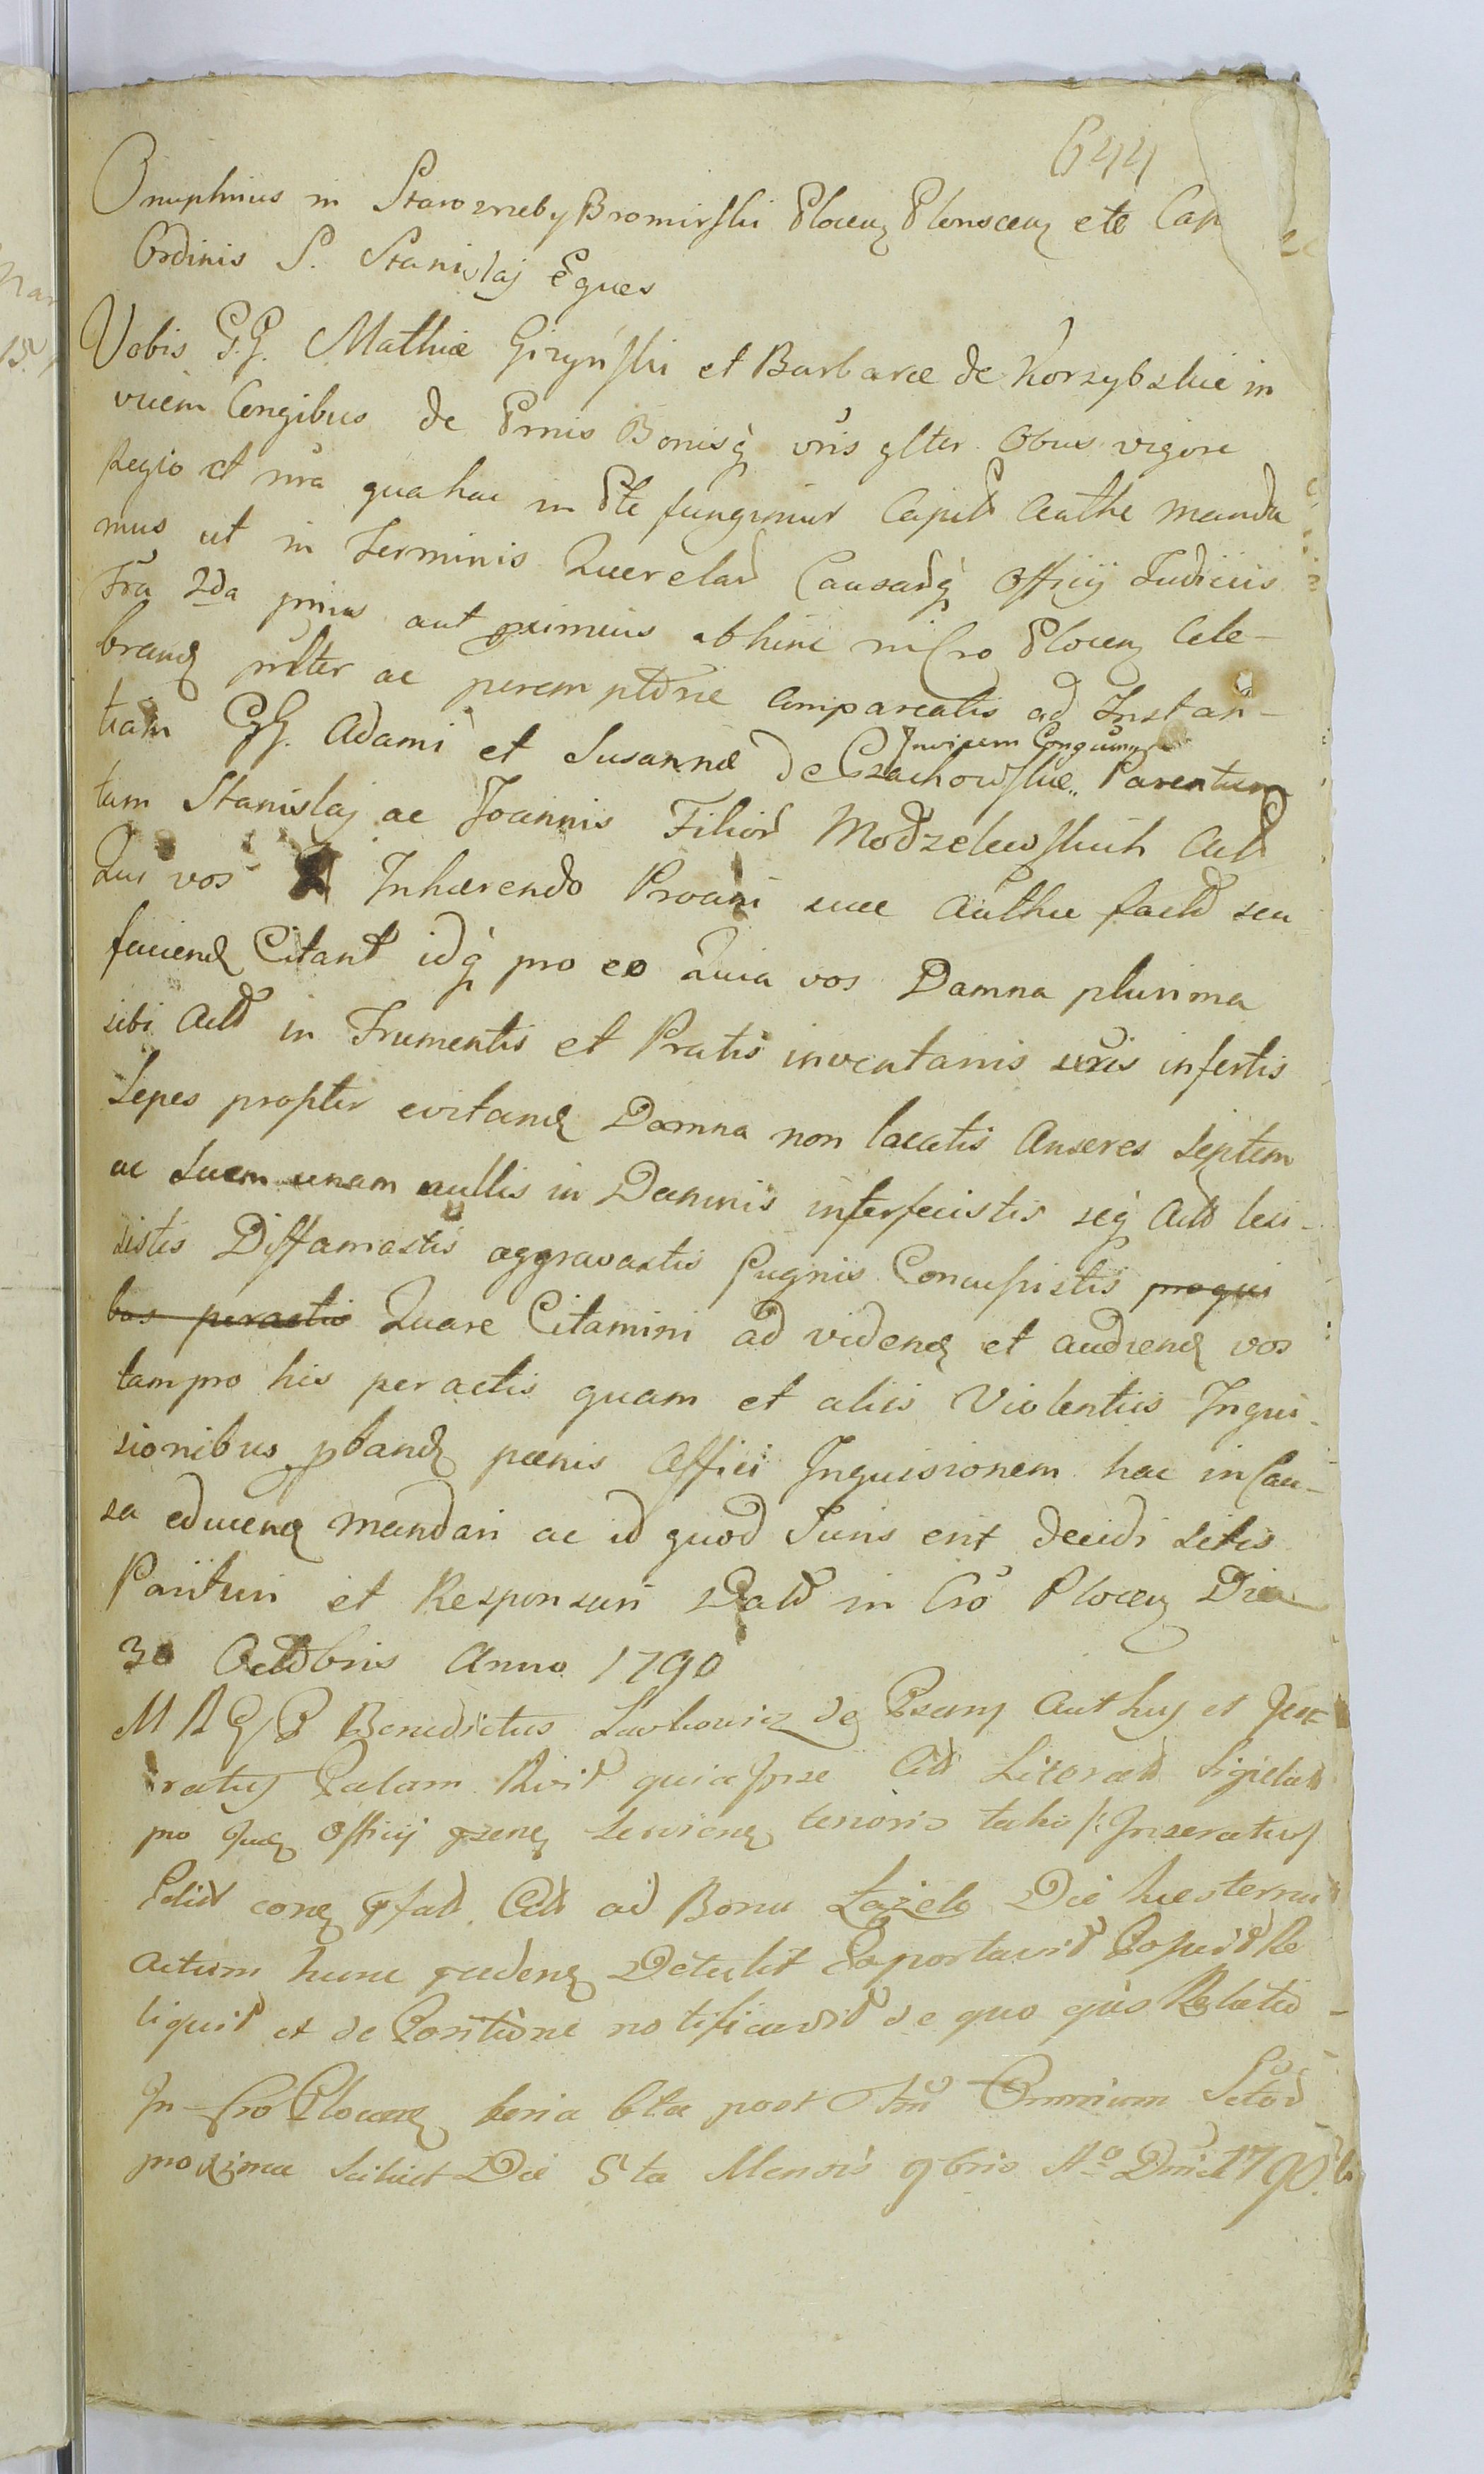 644
Onuphrius in Starozreby Bromirski Plocen Plonscen etc Cap
Ordinis S. Stanislaj Eques
Vobis G.G. Mathiæ Girzyński et Barbaræ de Korzybskie in
vicem Congibus de Prnis Bonisq vris glter Obus vigore
Regio et nra qua hac in Pte fungimur Capit Authe manda
mus ut in Terminis Querelar Causarq Officij Judiciis
Fra 2da pmis aut primius abhinc in Cro Plocen Cele-
brand prlter ac peremptorie compareatis ad Instan-
tiam GG. Adami et Susannæ de Czachowskie Invicem Congium Parentum
tum Stanislaj ac Joannis Filior Modzelewskich Act
Qui vos Inhærendo Proani suæ Authæ fact seu
faciend Citant idq pro eo Quia vos Damna plurima
sibi Act in Frumentis et Pratis inventariis suis infertis
Sepes propter evitand Damna non locatis Anseres Septem
ac Suem unam nullis in Damnis interfecistis seq Act leci-
sistis Diffamastis aggravastis Pugnis Concussistis pro qui
bus peractis Quare Citamini ad vidend et audiend vos
tam pro his peractis quam et aliis Violentiis Inqui-
sionibus pband pœnis Affici Inquisionem hac in Cau-
sa educend mandari ac id quod Juris erit decidi Sitis
Parituri et Responsuri Dat in Cro Plocen Die
30 Octobris Anno 1790
M R G P Benedictus de Pram Authus et Ju
ratus Palam Rcvit quia Ipse Cit Literat Sigielat
pro Jud Officij Tenoris talis /: Inseratur/
Edit Act ad Bona Łazeło Die hesterna
Actum hunc Detulit Exportavit Posuit Re
liquit et de Positione notificavit de quo ejus Relatio-
In Cro Plocen feria 6ta post Ftm Omnium Sctor
proxima Scilicet Die 5ta Mensis 9bris Ao Dni 1790.